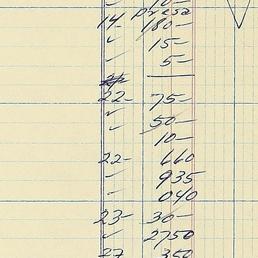 10-
presa
14- 180-
" 15-
" 5-
22- 75-
" 50-
10-
22- 660
" 935
" 040
23- 30-
" 2750
27 350